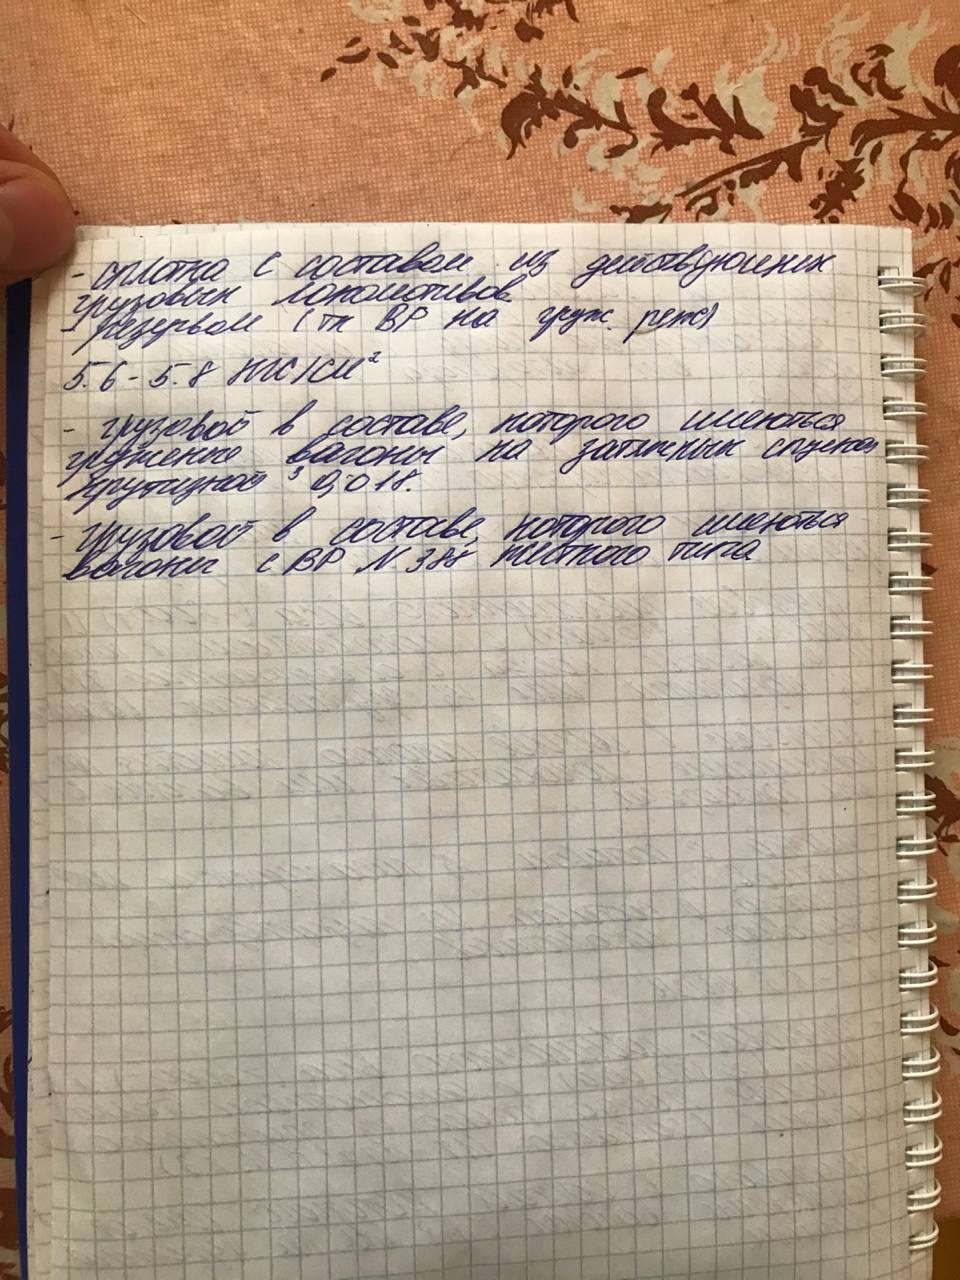 - сплотка с составом из действующих
грузовых локомотивов
- резервом (тк ВР на груж. реж)
5.6 - 5.8 кгс/см²
- грузовой в составе, которого имеються
груженые вагоны на затяжных спусках
крутизной 0,018.
- грузовой в составе, которого имеються
вагоны с ВР N 388 жёсткого типа